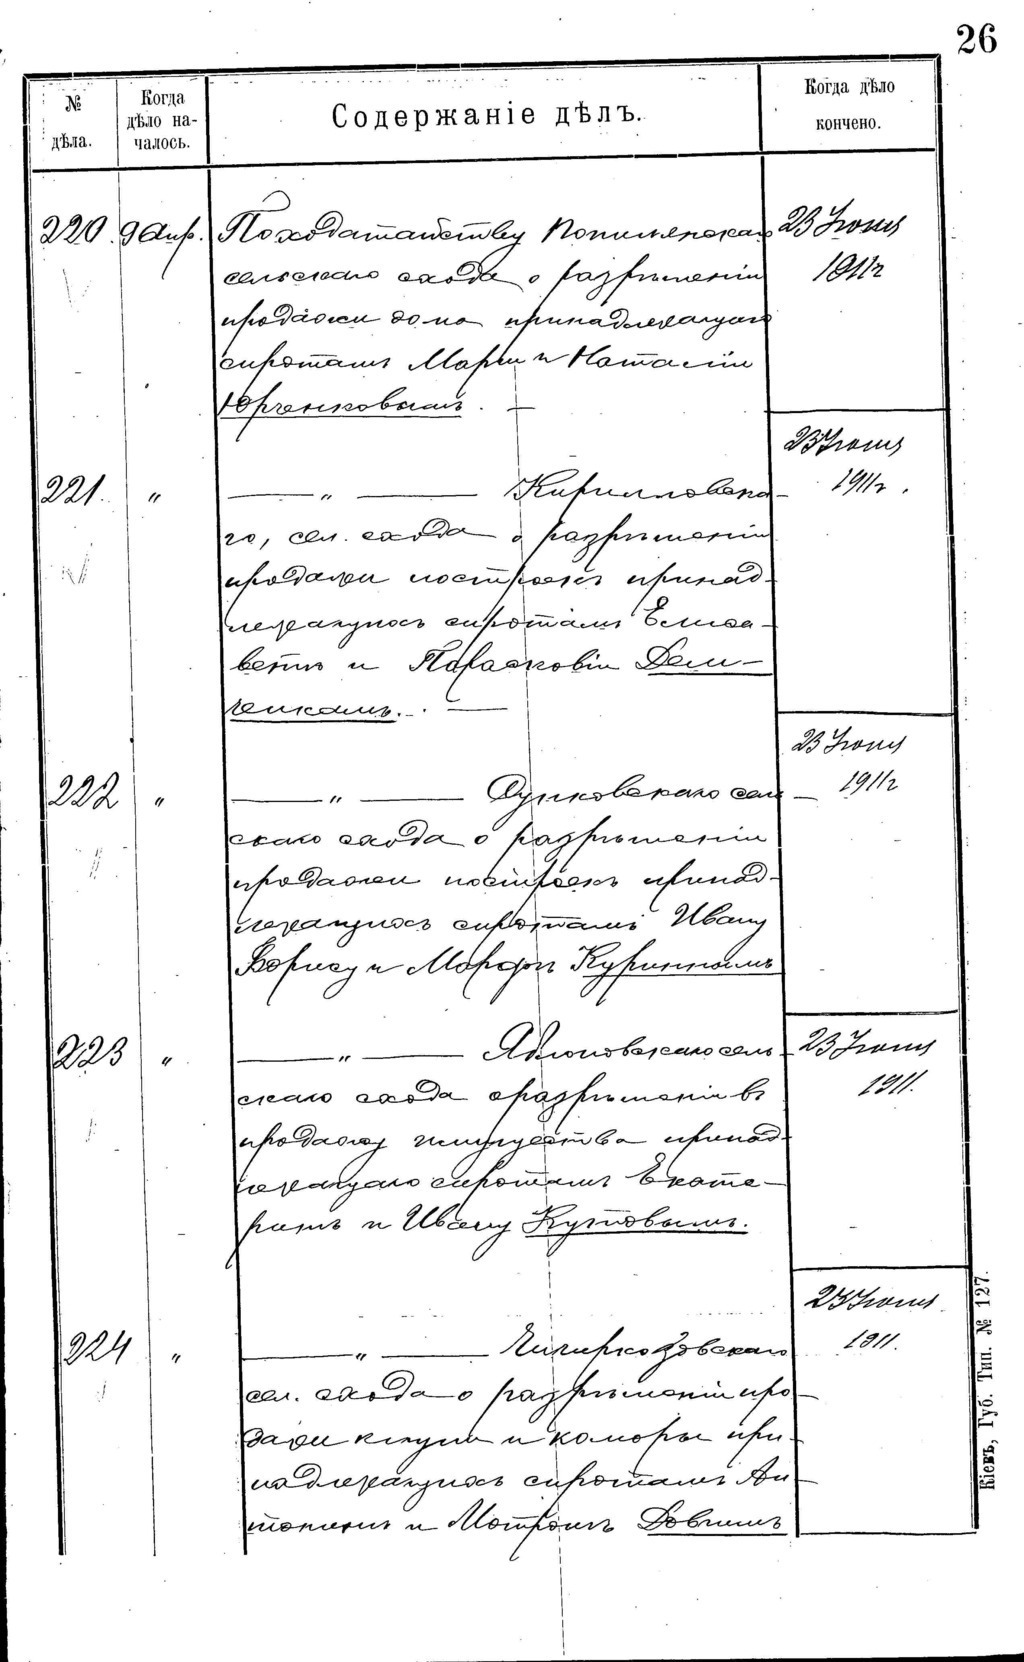 26
№ дѣла.
Когда дѣло на-
чалось.
Содержаніе дѣлъ.
Когда дѣло кончено.
220. 9 Апр. По ходатайству 23 Іюня
сельскаго схода о разрѣшеніи 1911 г
продажи дома принадлежащаго
сиротамъ Маріи и Наталіи
Юрченковымъ. —
23 Іюня
221. " — " — Кириловска- 1911 г.
го, сел. схода о разрѣшеніи
продажи построекъ принад-
лежащихъ сиротамъ Елиса-
ветѣ и Парасковіи Дем-
ченкамъ. —
23 Іюня
222 " — " — Сунковскаго сель- 1911 г
скаго схода о разрѣшеніи
продажи построекъ принад-
лежащихъ сиротамъ Ивану
Борису и Марфѣ Куриннымъ
223 " — " — Яблоновскаго сель- 23 Іюня
скаго схода о разрѣшеніи въ 1911.
продажу имущества принад-
лежащаго сиротамъ Екате-
ринѣ и Ивану Кутовымъ.
23 Іюня
224 " — " — Чичиркозовскаго 1911.
сел. схода о разрѣшеніи про-
дажи клуни и коморы при-
надлежащихъ сиротамъ Ан-
тонинѣ и Мотронѣ Довгимъ
Кіевъ, Губ. Тип. № 127.